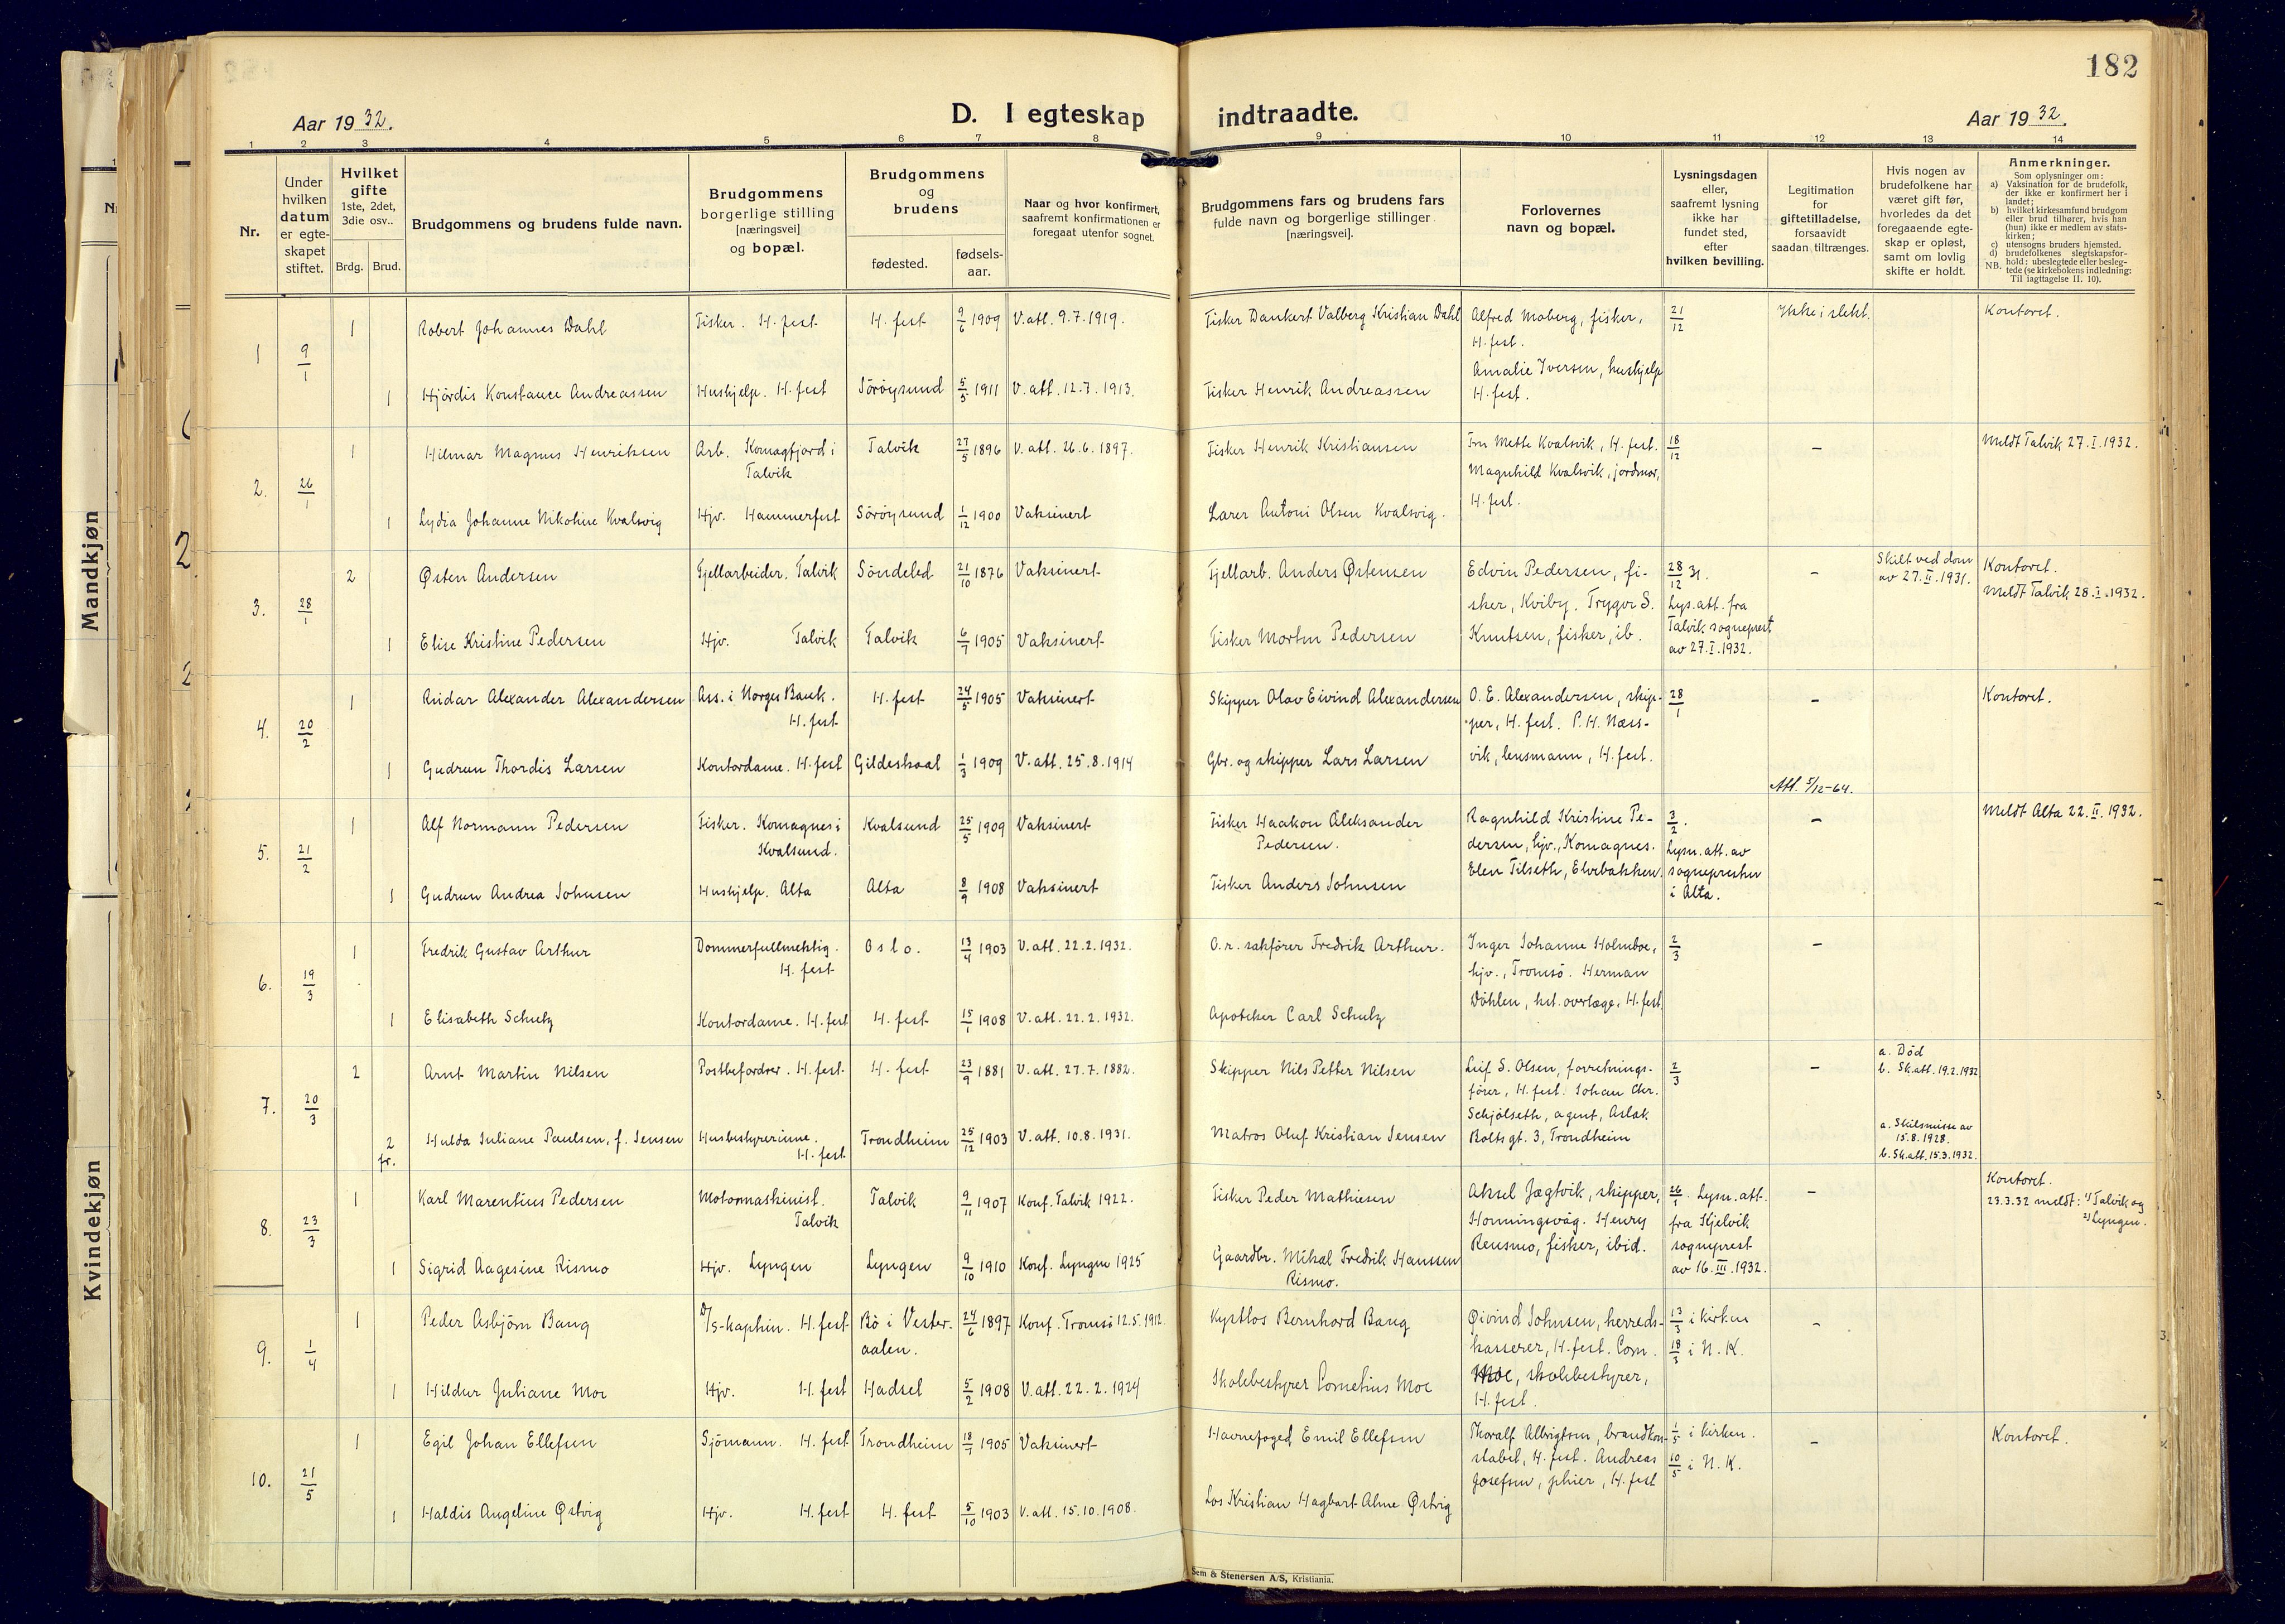 182
Aar 19 32.
D. I egteskap indtraadte.
Aar 19 32.
1 2 3 4 5 6 7 8 9 10 11 12 13 14
Nr.
Under hvilken datum er egte-skapet stiftet.
Hvilket gifte 1ste, 2det, 3die osv..
Brdg. Brud.
Brudgommens og brudens fulde navn.
Brudgommens borgerlige stilling [næringsvei] og bopæl.
Brudgommens og brudens
fødested.
fødsels-aar.
Naar og hvor konfirmert, saafremt konfirmationen er foregaat utenfor sognet.
Brudgommens fars og brudens fars fulde navn og borgerlige stillinger [næringsvei].
Forlovernes navn og bopæl.
Lysningsdagen eller, saafremt lysning ikke har fundet sted, efter hvilken bevilling.
Legitimation for giftetilladelse, forsaavidt saadan tiltrænges.
Hvis nogen av brudefolkene har været gift før, hvorledes da det foregaaende egte-skap er opløst, samt om lovlig skifte er holdt.
Anmerkninger.
Som oplysninger om:
a) Vaksination for de brudefolk, der ikke er konfirmert her i landet;
b) hvilket kirkesamfund brudgom eller brud tilhører, hvis han (hun) ikke er medlem av stats-kirken;
c) utensogns bruders hjemsted.
d) brudefolkenes slegtskapsfor-hold: ubeslegtede eller besleg-tede (se kirkebokens indledning: Til iagttagelse II. 10).
NB.
1 9/1
1 Robert Johannes Dahl Fisker. H.fest H.fest 9/6 1909 V.att. 9.7.1919. Fisker Dankert Valberg Kristian Dahl Alfred Moberg, fisker, 21/12 Ikke i slekt. Kontoret.
H.fest.
Amalie Iversen, hushjelp
1 Hjördis Konstance Andreassen Hushjelp. H.fest Söröysund 5/5 1911 V.att. 12.7.1913. Fisker Henrik Andreassen H.fest.
2. 26/1
1 Hilmar Magnus Henriksen Arb. Komagfjord i Talvik Talvik 27/5 1896 V.att. 26.6.1897. Fisker Henrik Kristiansen Fru Mette Kvalsvik, H.fest. 18/12 - Meldt Talvik 27.I.1932.
Magnhild Kvalsvik, jordmor,
H.fest.
1 Lydia Johanne Nikoline Kvalsvig Hjv. Hammerfest Söröysund 1/12 1900 Vaksinert Lærer Antoni Olsen Kvalsvig.
3. 28/1
2 Østen Andersen Fjellarbeider. Talvik Söndeled 21/10 1876 Vaksinert Fjellarb. Anders Østensen Edvin Pedersen, fi- 28/12 31. - Skilt ved dom av 27.II.1931. Kontoret.
Meldt Talvik 28.I.1932.
sker, Kviby. Trygve S. Lys.att. fra
Talvik sogneprest
1 Elise Kristine Pedersen Hjv. Talvik Talvik 6/7 1905 Vaksinert Fisker Morten Pedersen Knutsen, fisker, ib. av 27.I.1932.
4. 20/2
1 Reidar Alexander Alexandersen Ass. i Norges Bank. H.fest H.fest 24/5 1905 Vaksinert Skipper Olav Eivind Alexandersen O. E. Alexandersen, skip- 28/1 - Kontoret.
per, H.fest. P. H. Næss-
1 Gudrun Thordis Larsen Kontordame. H.fest Gildeskaal 1/3 1909 V.att. 25.8.1914 Gbr. og skipper Lars Larsen vik, lensmann, H.fest.
Att. 5/12-64.
5. 21/2
1 Alf Normann Pedersen Fisker. Komagnes i Kvalsund. Kvalsund 25/5 1909 Vaksinert Fisker Haakon Aleksander Pedersen. Ragnhild Kristine Pe- 3/2. - Meldt Alta 22.II.1932.
dersen, hjv., Komagnes. Lysn.att. av
1 Gudrun Andrea Johnsen Hushjelp. Alta Alta 8/9 1908 Vaksinert Fisker Anders Johnsen Elen Tilseth, Elvebakken. sognepresten
i Alta.
6. 19/3
1 Fredrik Gustav Arthur Dommerfullmektig. H.fest Oslo. 13/4 1903 V.att. 22.2.1932. O.r. sakförer Fredrik Arthur. Inger Johanne Holmboe, 2/3 -
hjv., Tromsö. Herman
Döhlen, hst. overlæge, H.fest
1 Elisabeth Schulz Kontordame. H.fest H.fest 15/1 1908 V.att. 22.2.1932. Apoteker Carl Schulz
7. 20/3
2 Arnt Martin Nilsen Postbefordrer. H.fest H.fest 23/9 1881 V.att. 27.7.1882. Skipper Nils Petter Nilsen Leif S. Olsen, forretnings- 2/3 - a. Död
b. Sk.att. 19.2.1932
förer, H.fest. Johan Chr.
Schjölseth, agent, Aslak
2 fr. Hulda Juliane Paulsen, f. Jensen Husbestyrerinne. H.fest Trondheim 25/12 1903 V.att. 10.8.1931. Matros Oluf Kristian Jensen Bolts gt. 3, Trondheim a. Skilsmisse av 15.8.1928.
b. Sk.att. 15.3.1932.
8. 23/3
1 Karl Marentius Pedersen Motormaskinist. Talvik Talvik 9/11 1907 Konf. Talvik 1922. Fisker Peder Mathiesen Aksel Jægtvik, skipper, 26/1. Lysn.att. - Kontoret.
23.3.32 meldt: 1) Talvik og 2) Lyngen.
Honningsvåg. Henry fra Kjelvik
1 Sigrid Aagesine Rismo Hjv. Lyngen Lyngen 9/10 1910 Konf. Lyngen 1925 Gaardbr. Mikal Fredrik Hanssen Rismo. Rensmo, fisker, ibid. sogneprest
av 16.III.1932.
9. 1/4
1 Peder Asbjörn Bang D/S-kaptein. H.fest Bö i Vester-aalen. 24/6 1897 Konf. Tromsö 12.5.1912. Kystlos Bernhard Bang Øivind Johnsen, herreds- 13/3 i kirken -
kasserer, H.fest. Corn. 18/3 i N.K.
1 Hildur Juliane Moe Hjv. H.fest Hadsel 5/2 1908 V.att. 22.2.1924 Skolebestyrer Cornelius Moe Moe, skolebestyrer,
H.fest.
10. 21/5
1 Egil Johan Ellefsen Sjömann. H.fest Trondheim 18/7 1905 Vaksinert Havnefoged Emil Ellefsen Thoralf Albrigtsen, brandkon- 1/5 i kirken. - Kontoret.
stabel, H.fest. Andreas 10/5 i N.K.
Josefsen, H.fest
1 Haldis Angeline Østvig Hjv. H.fest H.fest 5/10 1903 V.att. 15.10.1908. Los Kristian Hagbart Alme Østvig
Sem & Stenersen A/S, Kristiania.
Mandkjøn
Kvindekjøn